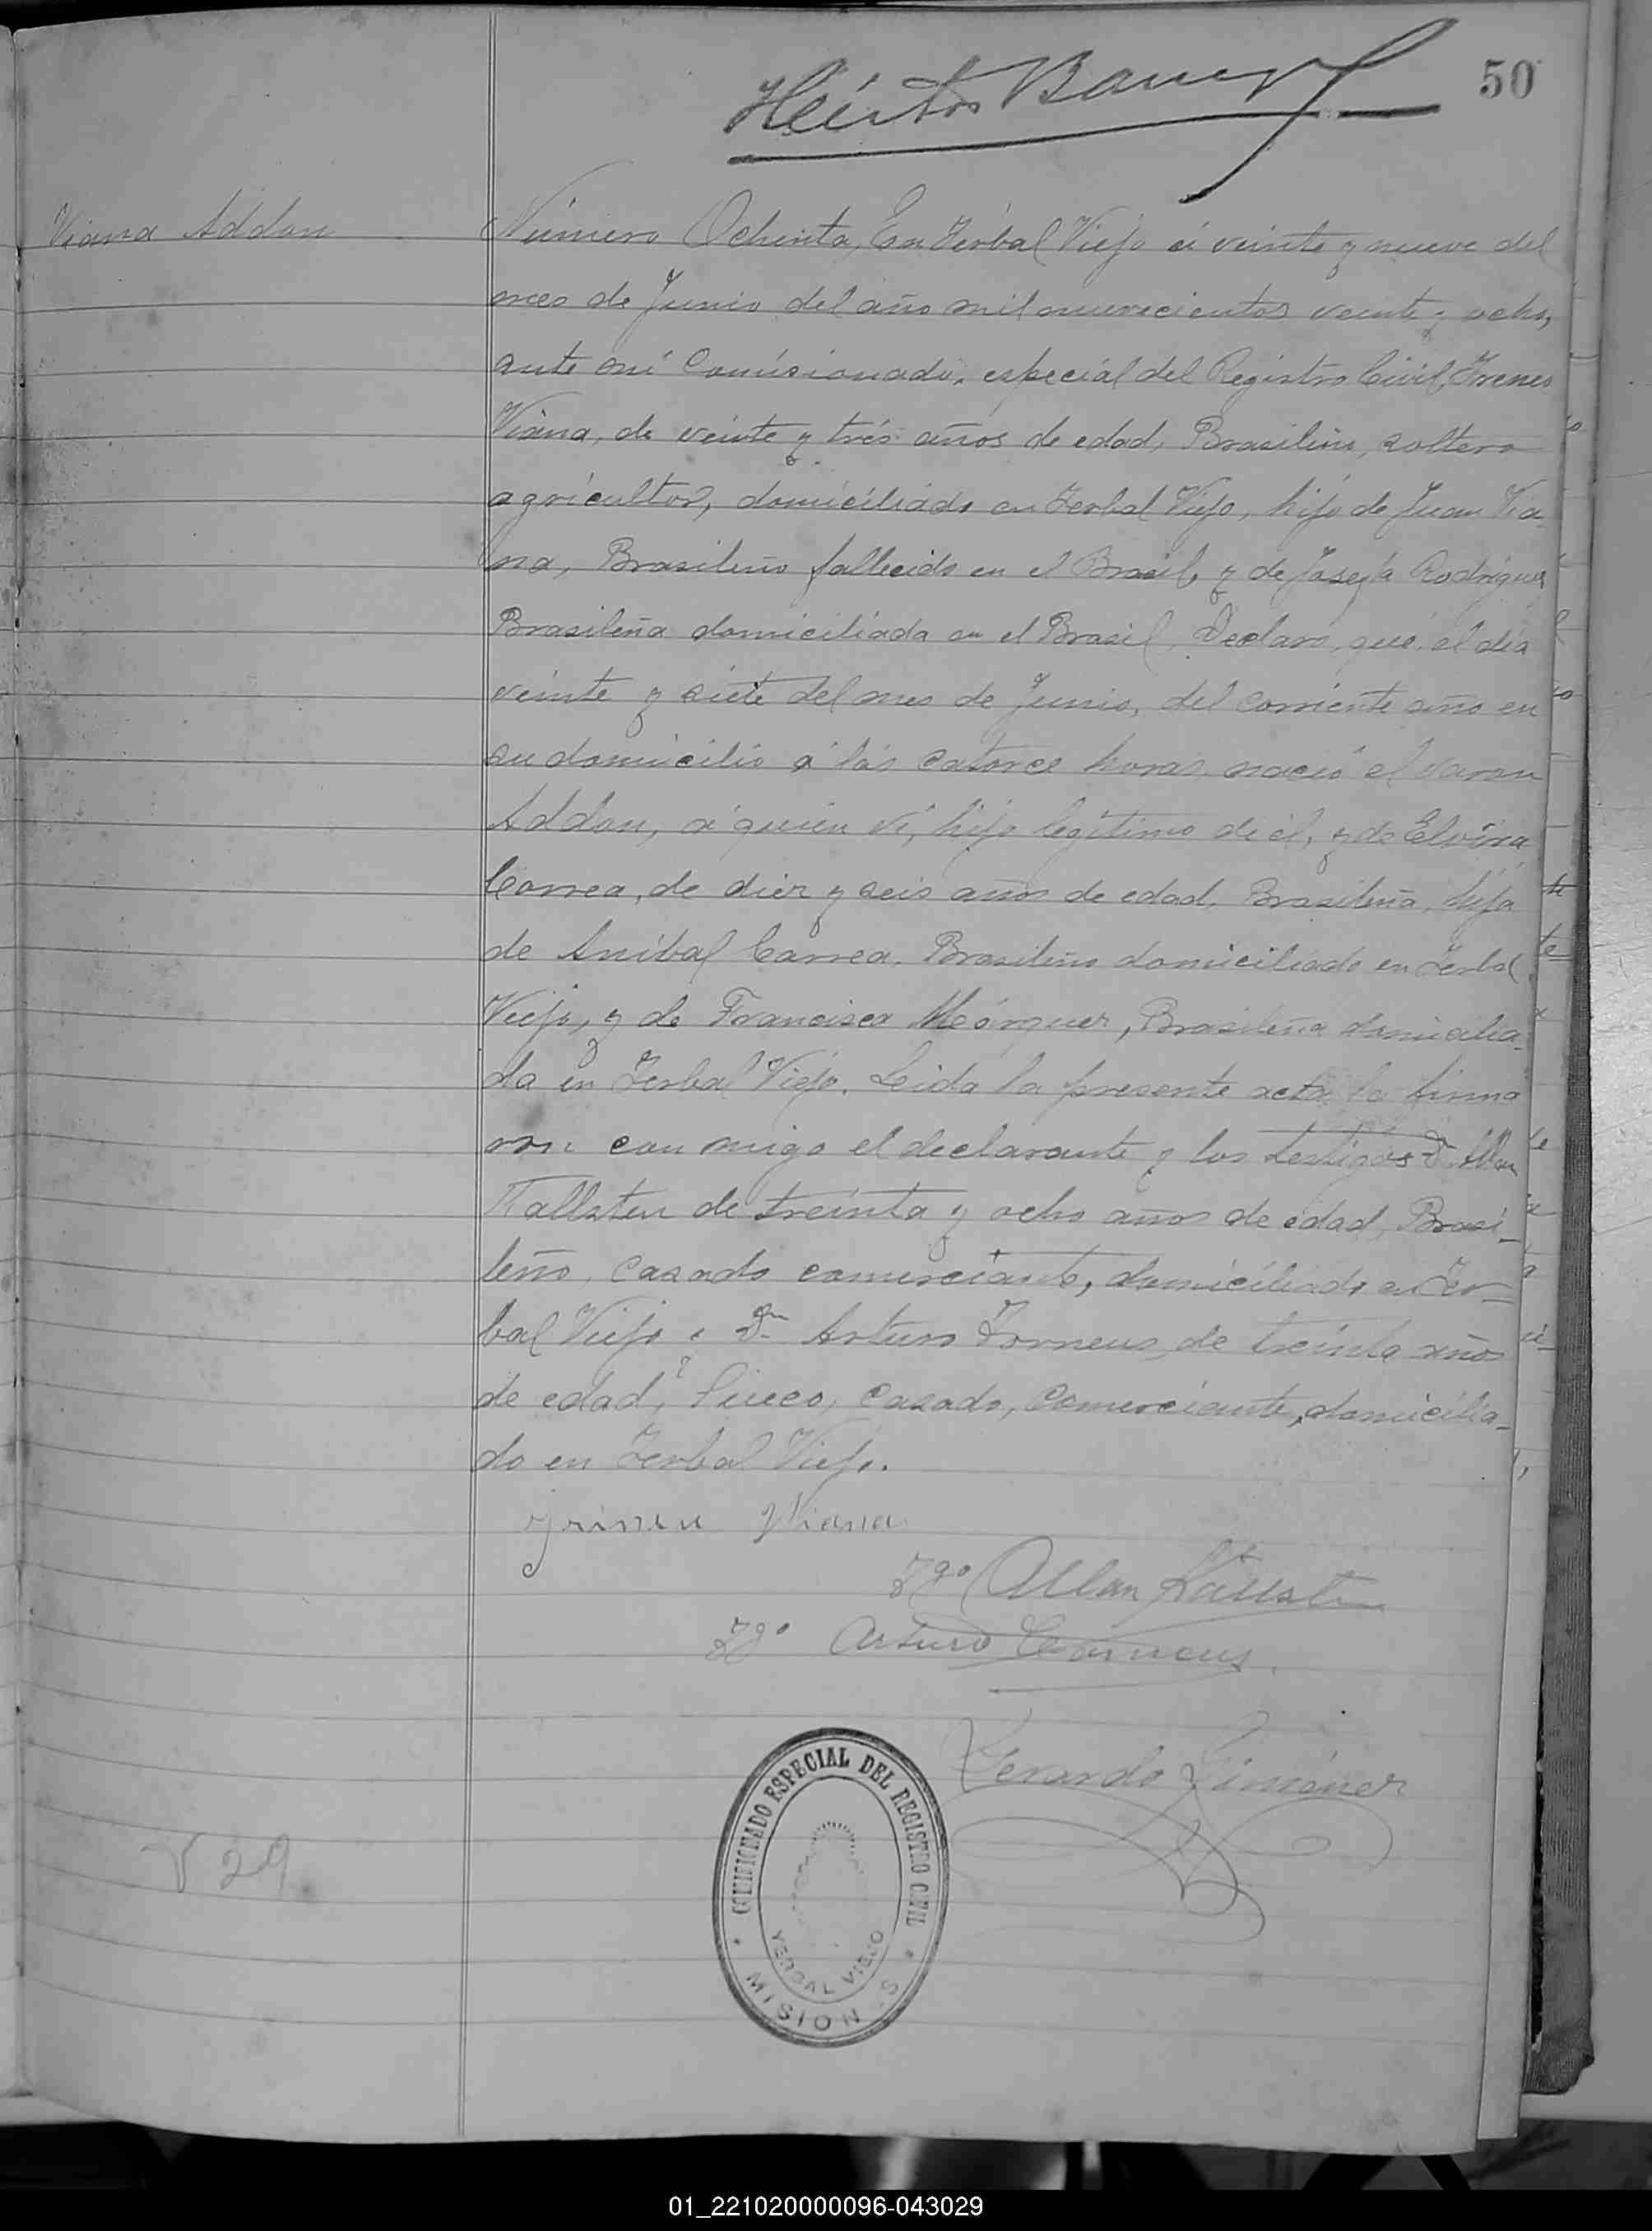 50
Viana Addon
Número Ochenta, En Yerbal Viejo á veinte y nueve del
mes de Junio del año mil novecientos veinte y ocho,
ante mí Comisionado, especial del Registro Civil, Irenes
Viana, de veinte y trés años de edad, Brasileño, soltero
agricultor, domiciliado en Yerbal Viejo, hijo de Juan Via-
na, Brasileño fallecido en el Brasil, y de Josefa Rodriguez
Brasileña domiciliada en el Brasil, Declaro, que, el día
veinte y siete del mes de Junio, del corriente año en
su domicilio á las catorce horas, nació el varon
Addon, á quien ví, hijo legítimo de él, y de Elvira
Correa, de diez y seis años de edad, Brasileña, hija
de Anibal Correa, Brasileño domiciliado en Yerbal
Viejo, y de Francisca Márquez, Brasileña domicilia-
da en Yerbal Viejo. Leida la presente acta la firma
ron con migo el declarante y los testigos Dn Allan
Kallsten de treinta y ocho años de edad, Brasi-
leño, casado comerciante, domiciliado en Yer-
bal Viejo é Dn Arturo Forneus, de treinta años
de edad, Sueco, casado, comerciante, domicilia-
do en Yerbal Viejo.
Viana
Tgo Allan Källsten
Tgo Arturo
Gerardo Giménez
COMISIONADO ESPECIAL DEL REGISTRO CIVIL
YERBAL VIEJO
MISIONES
V 29
01_221020000096-043029